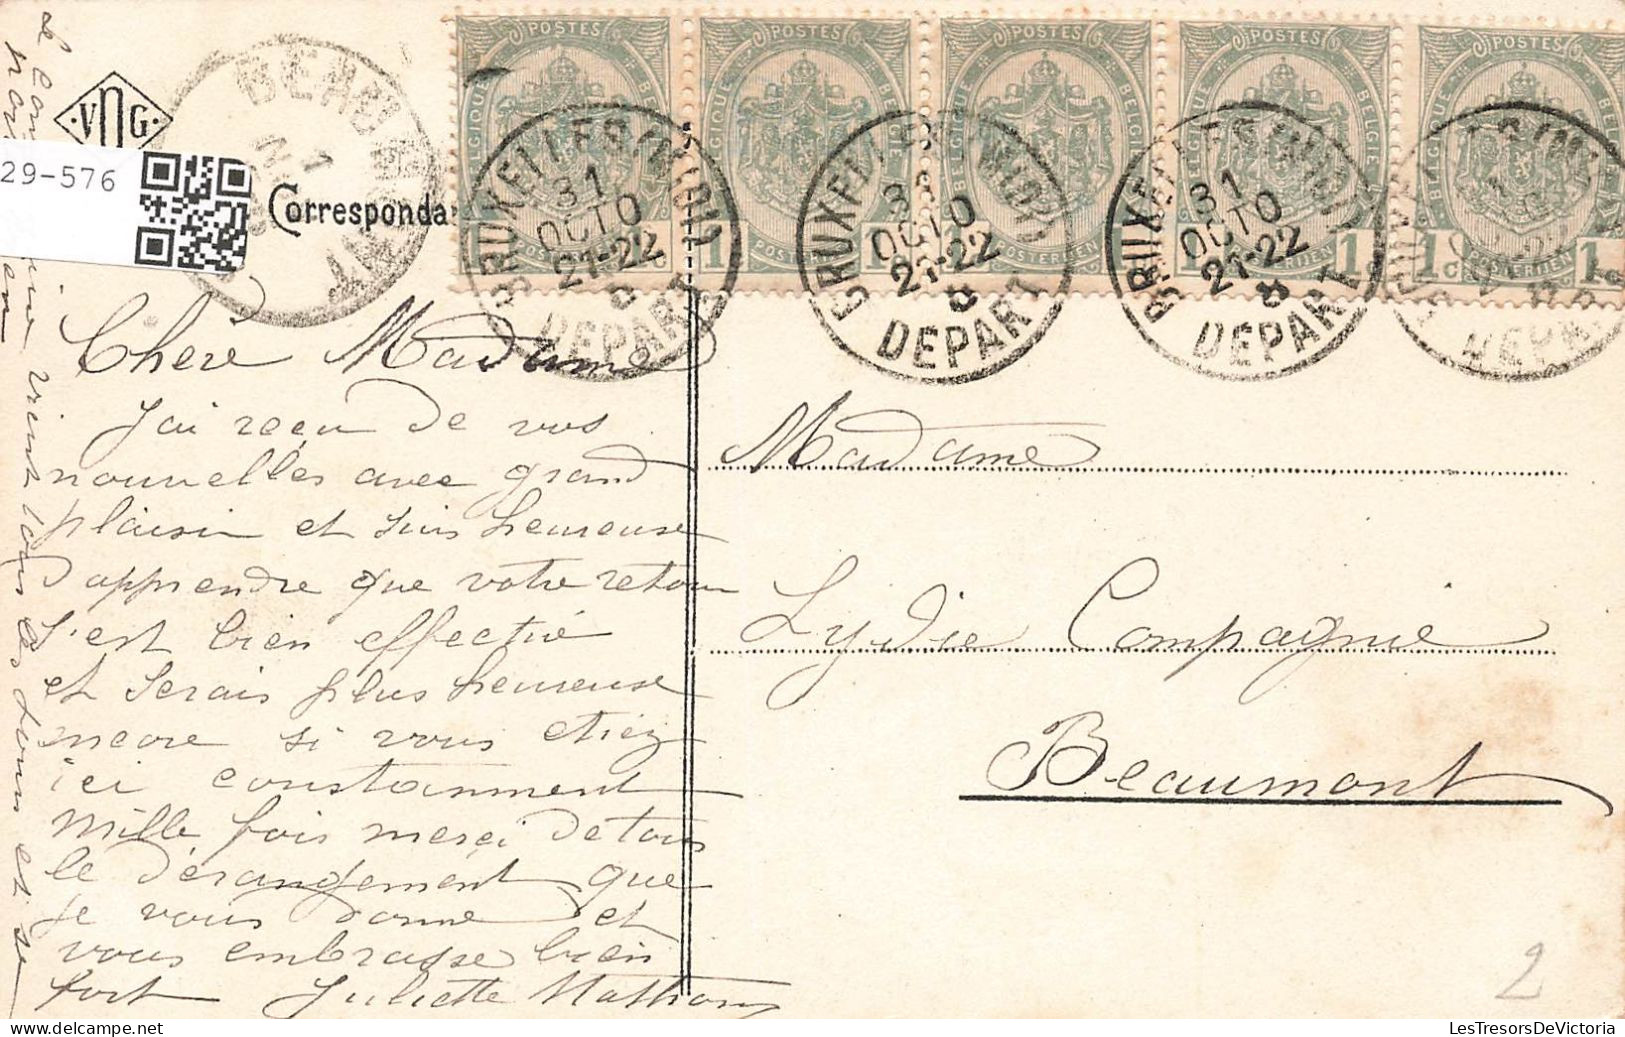 POSTES POSTES POSTES POSTES POSTES
BELGIQUE BELGIE
POSTERIJEN
1c
BRUXELLES (MIDI)
31
OCTO
21-22
8
DEPART
BEAUMONT
V N G
29-576
Corresponda
Chere Madame
J'ai reçu de vos
nouvelles avec grand
plaisir et suis heureuse
d'apprendre que votre retour
s'est bien effectué
et serais plus heureuse
encore si vous étiez
ici constamment
Mille fois merci de tous
le dérangement que
je vous donne et
vous embrasse bien
fort Juliette Mathieu
vient tous les jours et se
Madame
Lydie Compagnie
Beaumont
2
LesTresorsDeVictoria